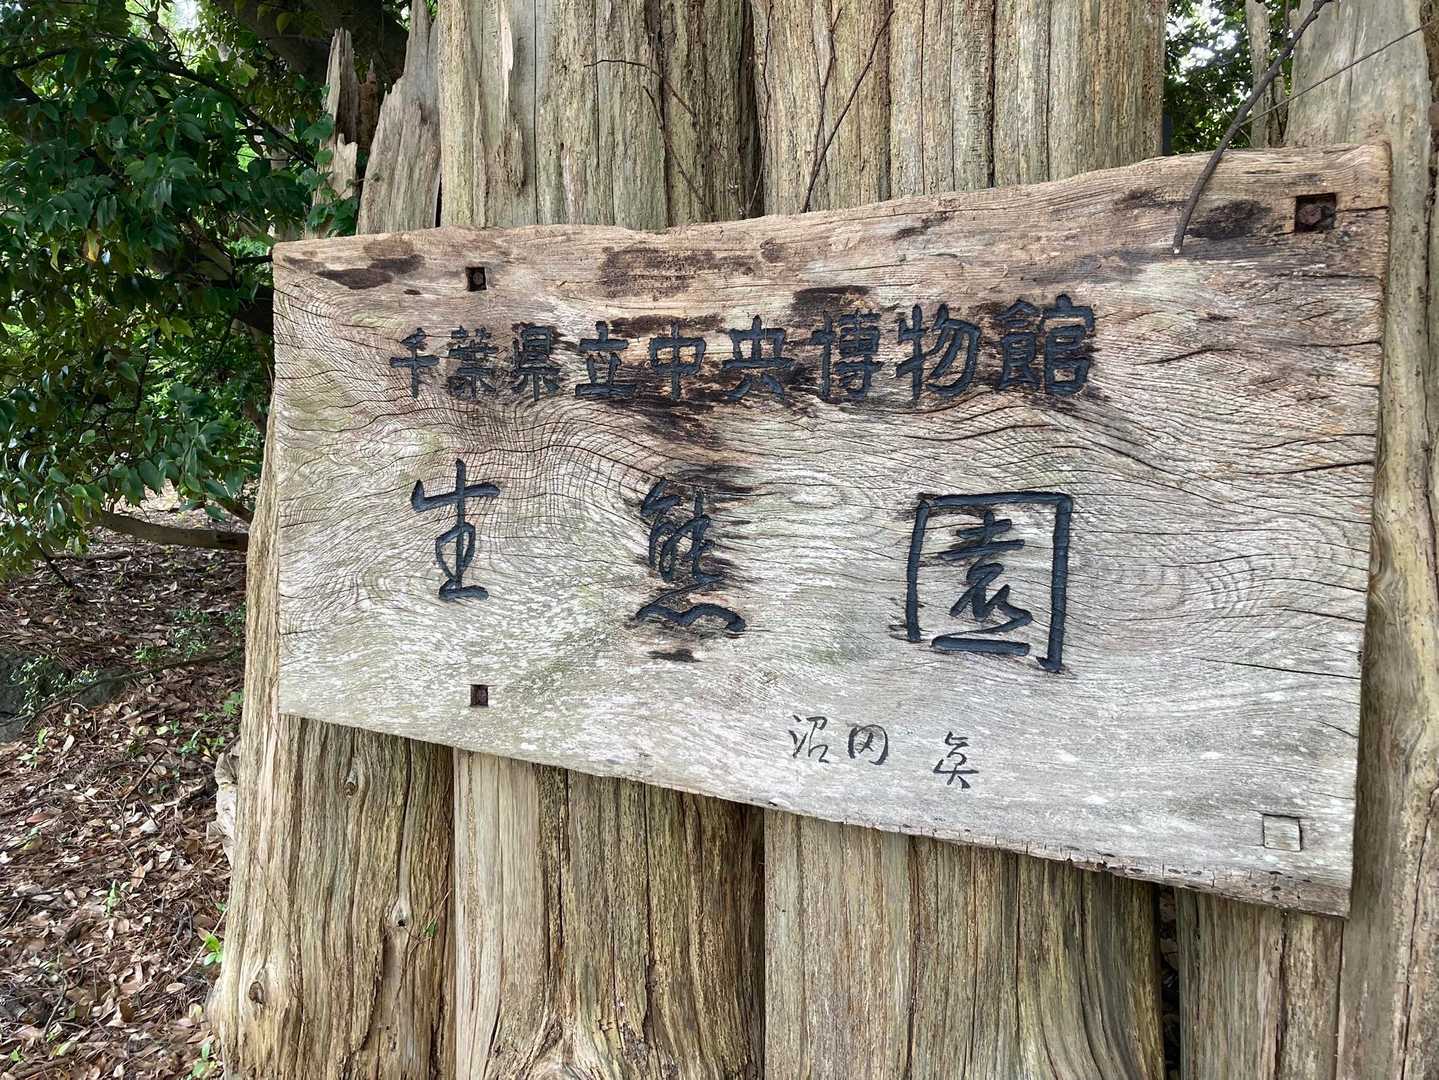 千葉県立中央博物館
生態園
沼田 眞